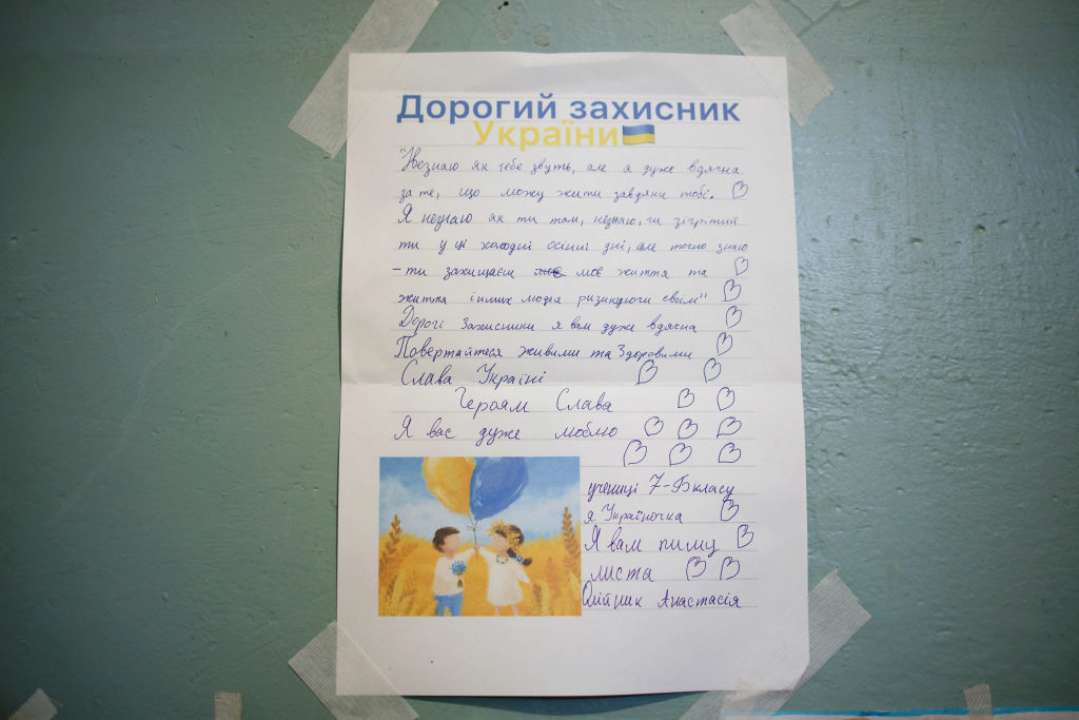 Дорогий захисник
України
"Незнаю як тебе звуть, але я дуже вдячна
за те, що можу жити завдяки тобі.
Я незнаю як ти там, незнаю, чи зігрітий
ти у ці холодні осінні дні, але точно знаю
- ти захищаєш моє життя та
життя інших людей ризикуючи своїм"
Дорогі Захисники я вам дуже вдячна
Повертайтеся живими та Здоровими
Слава Україні
Героям Слава
Я вас дуже люблю
учениці 7-Б класу
я Україночка
Я вам пишу
листа
Олійник Анастасія